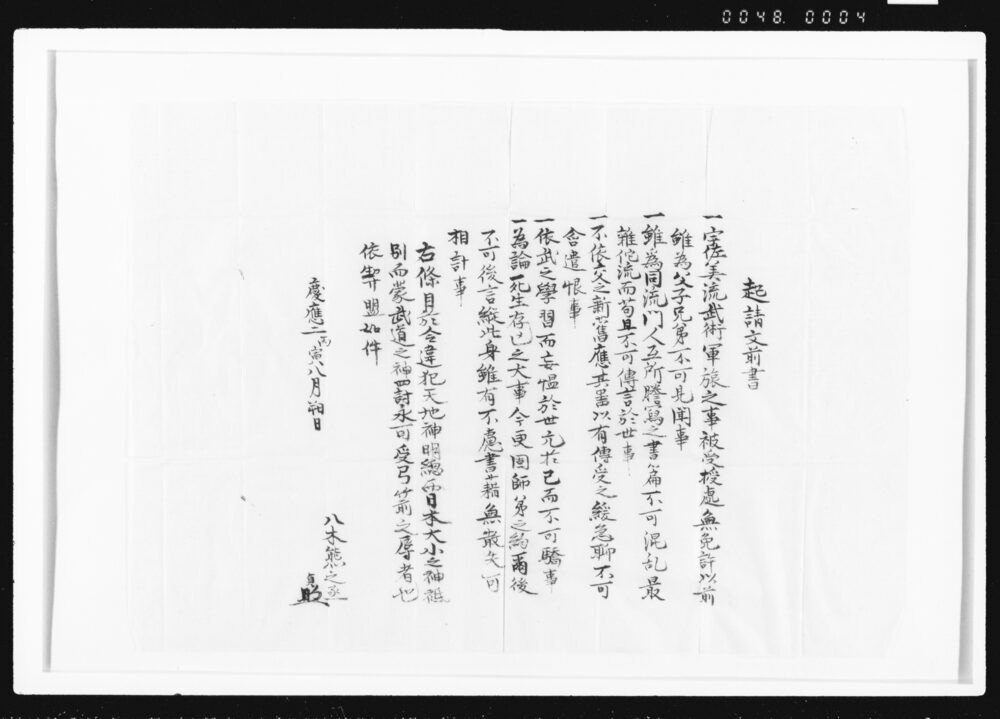 0048. 0004
起請文前書
一宇佐美流武術軍旅之事被受授處無免許以前
雖為父子兄弟不可見聞事
一雖為同流門人互所謄寫之書篇不可混乱最
雜佗流而苟且不可傳言於世事
一不依父之新舊應其器以有傳受之緩急聊不可
含遺恨事
一依武之學習而妄慍於世亢於己而不可驕事
一為論死生存亡之大事今更固師弟之約爾後
不可後言縦此身雖有不慮書籍無散失可
相計事
右條目於令違犯天地神明總而日本大小之神祇
別而蒙武道之神罰永可受弓箭之辱者也
依契盟如件
慶應二丙寅八月朔日
八木熊之丞